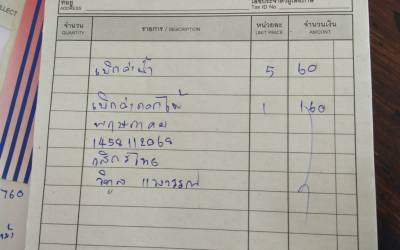 ที่อยู่
ADDRESS
เลขประจำตัวผู้เสียภาษี
Tax ID No.
จำนวน
QUANTITY
รายการ / DESCRIPTION
หน่วยละ
UNIT PRICE
จำนวนเงิน
AMOUNT
เบิกค่าน้ำ 5 60
เบิกค่าดอกไม้ 1 160
พฤษภาคม
1458112068
กสิกรไทย
760